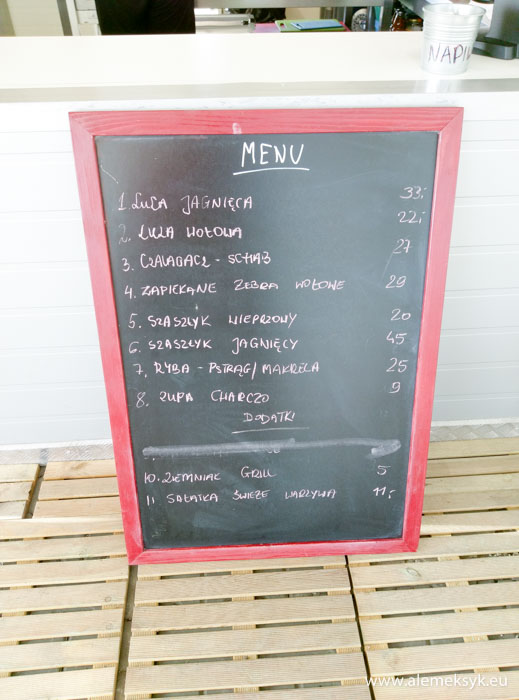 NAPI
MENU
1. LULA JAGNIĘCA 33,-
2. LULA WOŁOWA 22,-
3. CZALAGACZ - SCHAB 27
4. ZAPIEKANE ŻEBRA WOŁOWE 29
5. SZASZŁYK WIEPRZOWY 20
6. SZASZŁYK JAGNIĘCY 45
7. RYBA - PSTRĄG/MAKRELA 25
8. ZUPA CHARCZO 9
DODATKI
10. ZIEMNIAK GRILL 5
11 SAŁATKA ŚWIEŻE WARZYWA 11,-
www.alemeksyk.eu